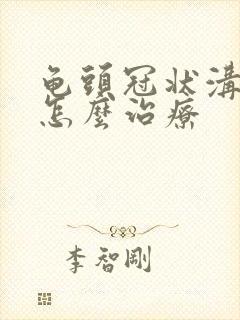 龟頭冠状溝
怎麼治療
李智剛